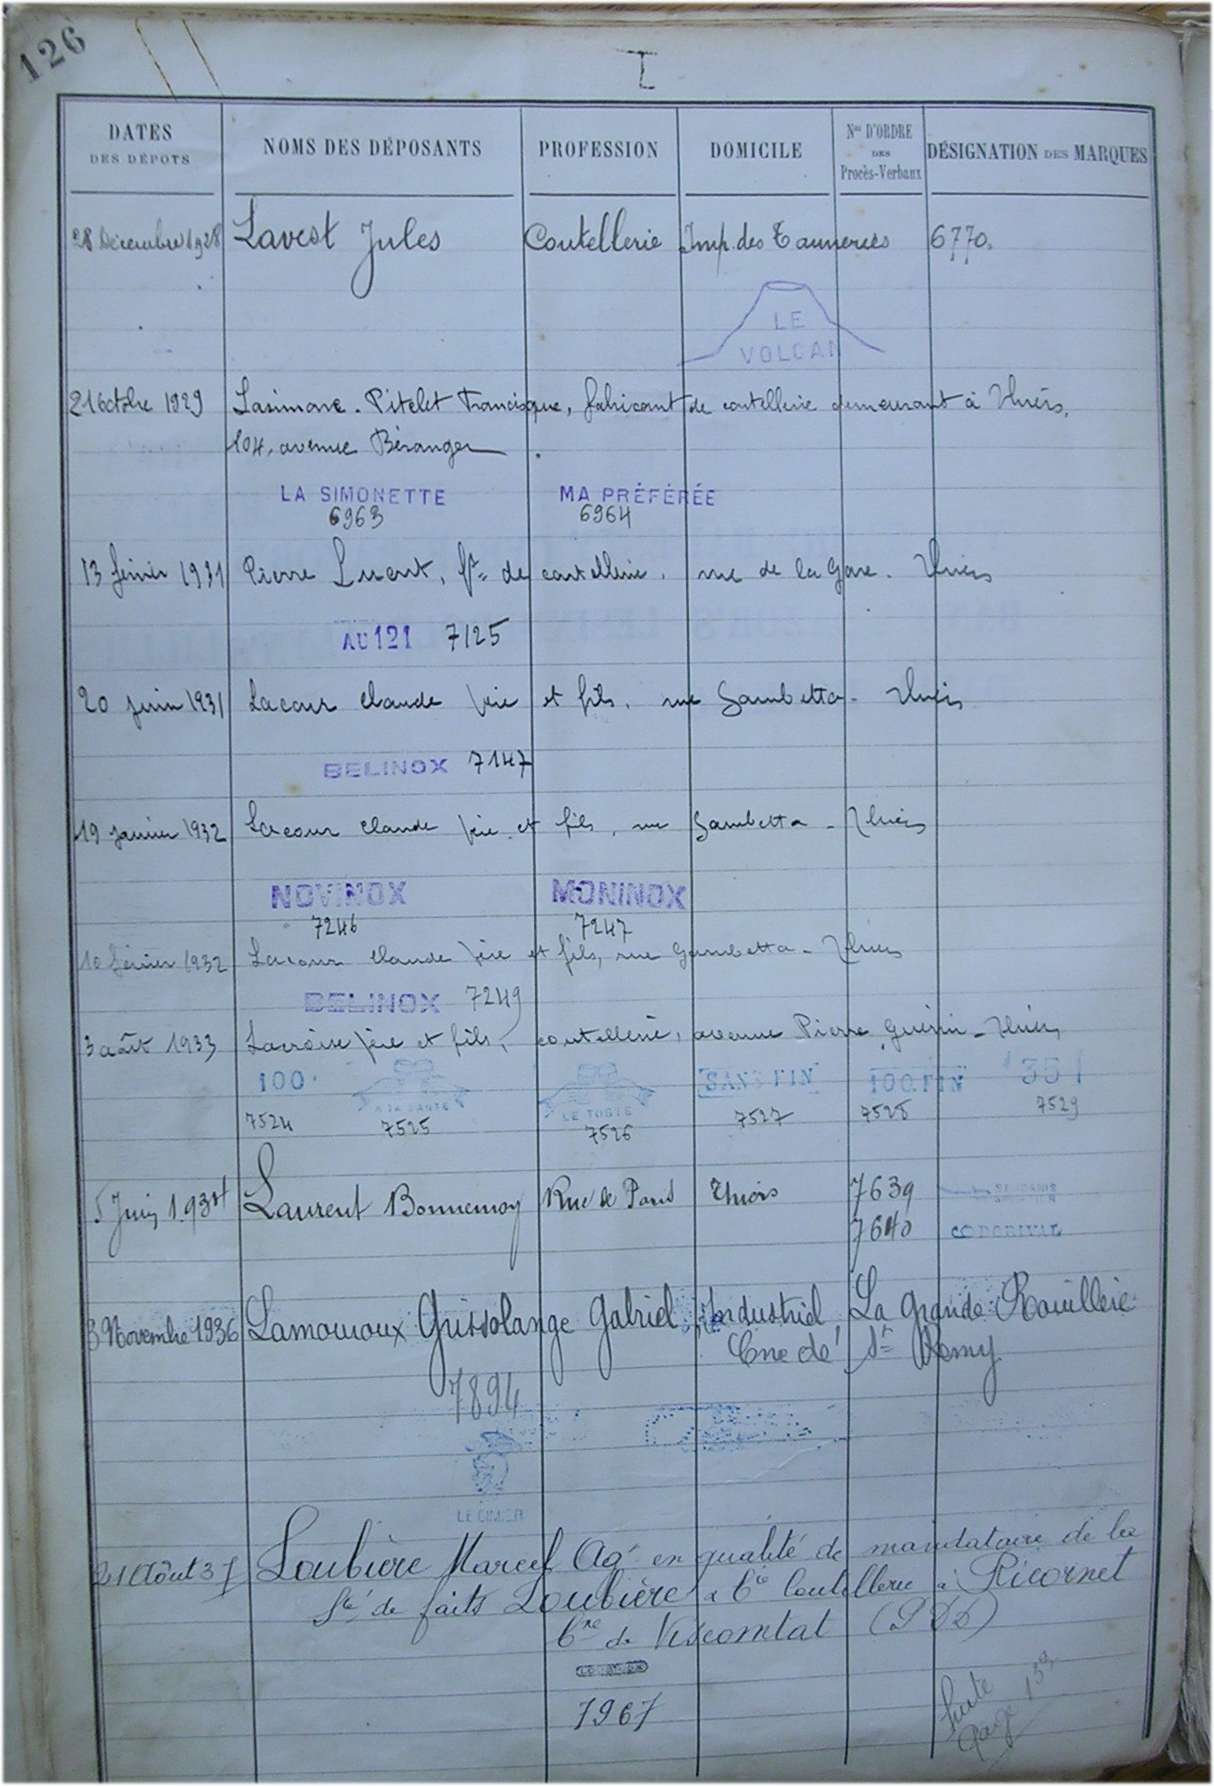 126
L
DATES DES DÉPOTS
NOMS DES DÉPOSANTS
PROFESSION
DOMICILE
Nos D'ORDRE DES Procès-Verbaux
DÉSIGNATION DES MARQUES
28 Décembre 1928 Lavest Jules Coutellerie Imp. des Tanneries 6770.
LE
VOLCAN
21 octobre 1929 Pitelet Francisque, fabricant de coutellerie demeurant à Thiers,
104, avenue Béranger
LA SIMONETTE MA PRÉFÉRÉE
6963 6964
13 février 1931 Pierre de coutellerie, rue de la Gare. Thiers
AU 121 7125
20 juin 1931 Lacour Claude père et fils, rue Gambetta - Thiers
BELINOX 7147
19 janvier 1932 Lacour Claude père et fils, rue Gambetta - Thiers
NOVINOX MONINOX
7246 7247
10 février 1932 Lacour Claude père et fils, rue Gambetta - Thiers
BELINOX 7249
3 août 1933 Lacroix père et fils, coutellerie, avenue Pierre Guérin - Thiers
100 A LA SANTÉ SANS FIN 100.FIN 351
7524 7525 7526 7527 7528 7529
5 Juin 1934 Laurent Bonnemoy Rue de Paris Thiers 7639
7640
3 Novembre 1936 Lamouroux Grissolange Gabriel Industriel La Grande
Cne de St Remy
7894
LE CIMIER
21 Août 37 Loubière Marcel en qualité de mandataire de la
Sté de faits Loubière & Cie Coutellerie à Picornet
Cne de Viscomtat (P D D)
7967
Suite
page 133